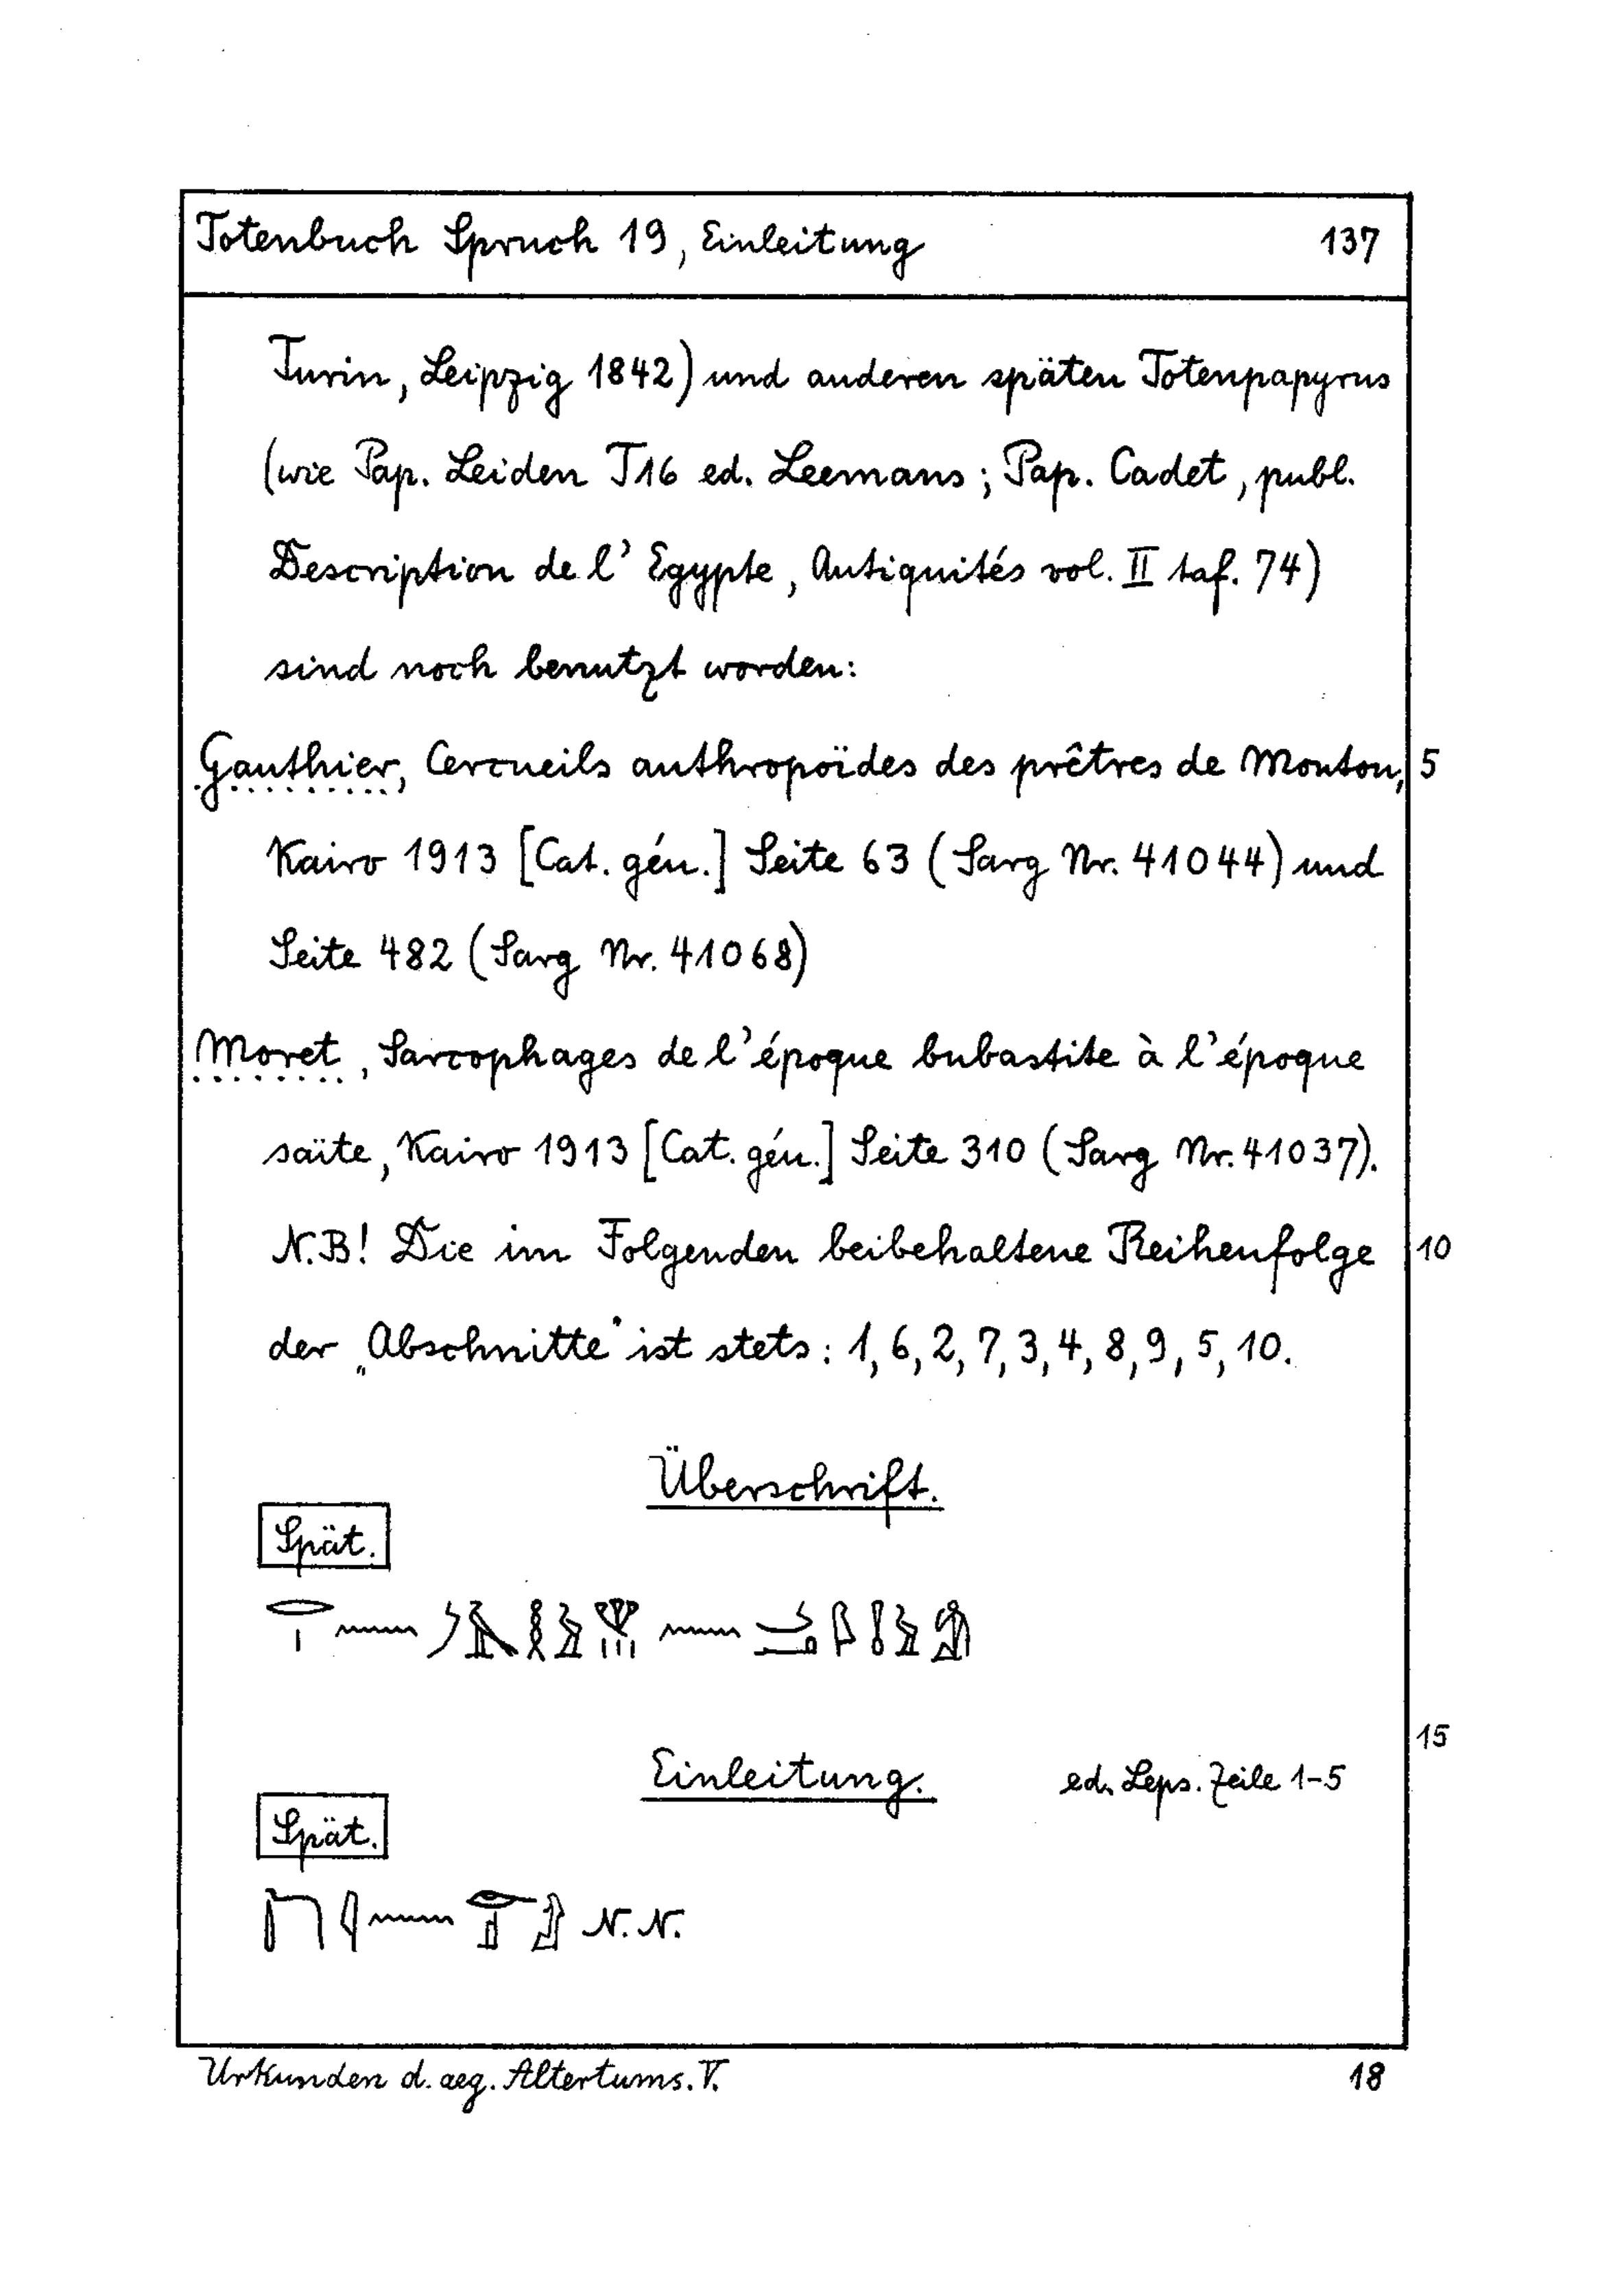 Totenbuch Spruch 19, Einleitung 137
Turin, Leipzig 1842) und anderen späten Totenpapyrus
(wie Pap. Leiden T16 ed. Leemans; Pap. Cadet, publ.
Description de l' Egypte, Antiquités vol. II taf. 74)
sind noch benutzt worden:
Gauthier, Cercueils anthropoïdes des prêtres de Montou, 5
Kairo 1913 [Cat. gén.] Seite 63 (Sarg Nr. 41044) und
Seite 482 (Sarg Nr. 41068)
Moret, Sarcophages de l'époque bubastite à l'époque
saïte, Kairo 1913 [Cat. gén.] Seite 310 (Sarg Nr. 41037).
N.B! Die im Folgenden beibehaltene Reihenfolge 10
der „Abschnitte“ ist stets: 1, 6, 2, 7, 3, 4, 8, 9, 5, 10.
Überschrift.
Spät.
15
Einleitung. ed. Leps. Zeile 1-5
Spät.
N. N.
Urkunden d. aeg. Altertums. V. 18